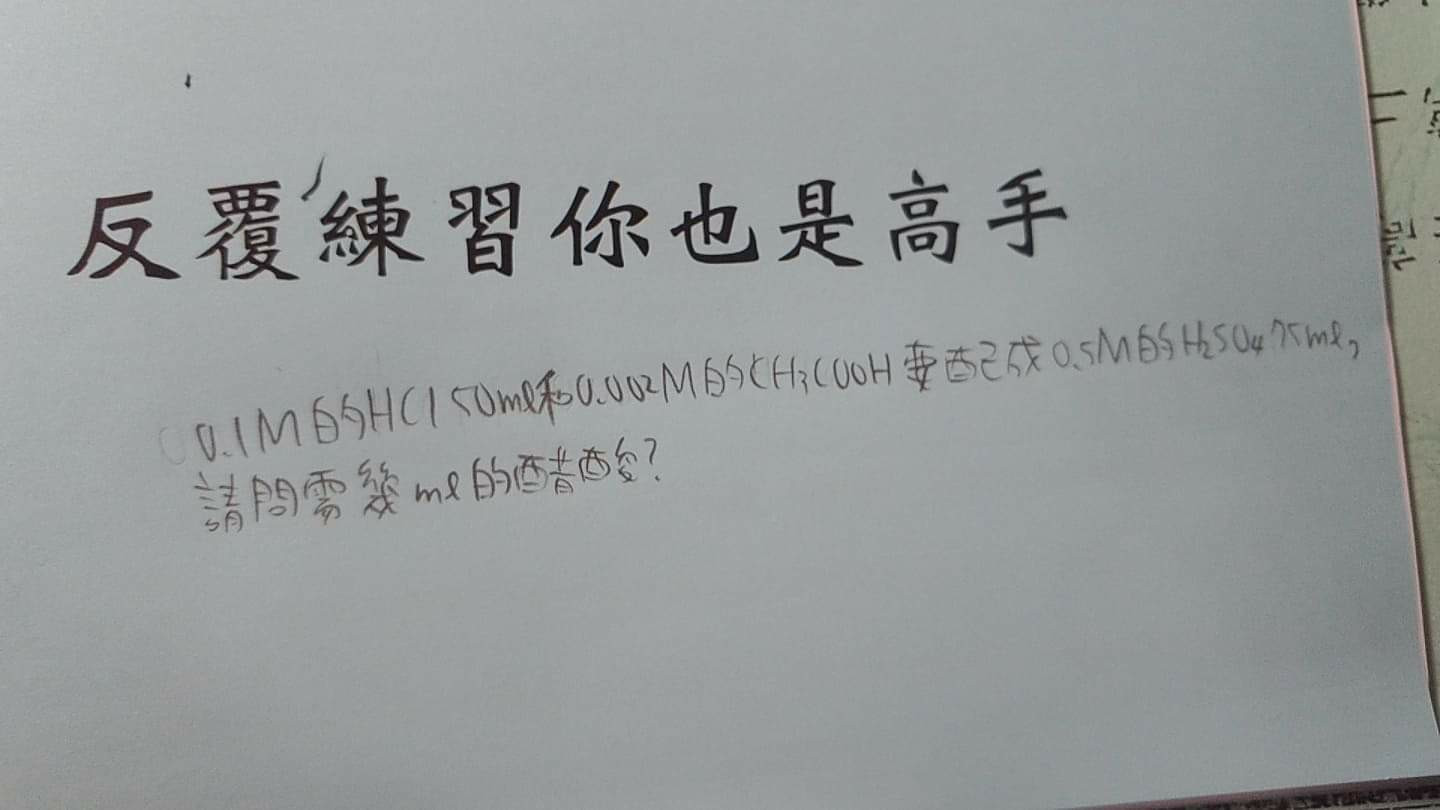 反覆練習你也是高手
0.1M的HCl 50ml和0.002M的CH3COOH要配成0.5M的H2SO4 75ml,
請問需幾ml的醋酸?